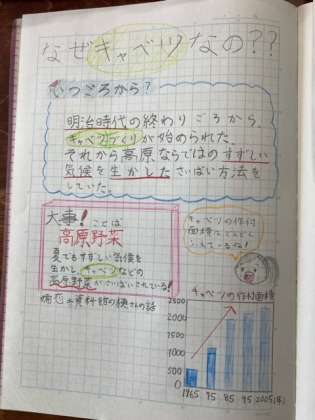 なぜキャベツなの??
いつごろから?
明治時代の終わりごろから、
キャベツづくりが始められた。
それから高原ならではのすずしい
気候を生かしたさいばい方法を
していた。
大事!ことは
高原野菜
夏でもすずしい気候を
生かし、キャベツなどの
高原野菜がさいばいされている!
キャベツの作付
面積はどんどん
ふえているね!
キャベツの作付面積
2500
2000
1500
1000
500
0
1965 75 85 95 2005(年)